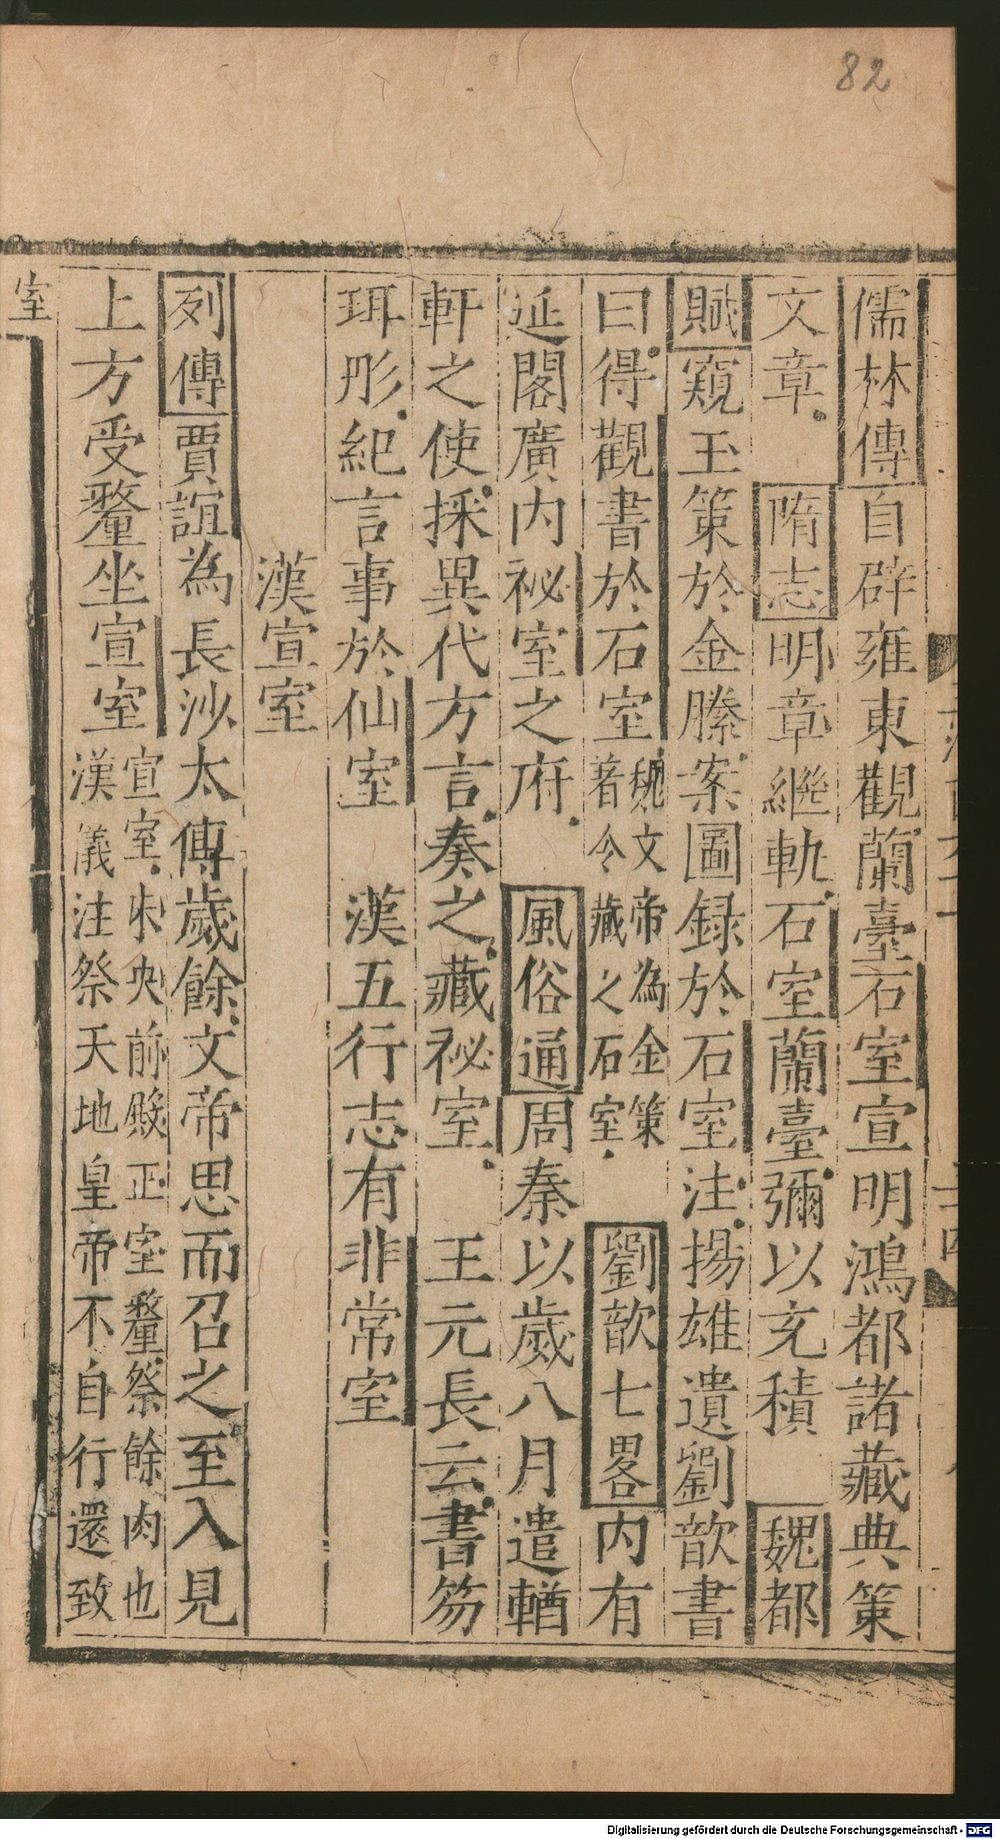 82
儒林傳自辟雍東觀蘭臺石室宣明鴻都諸藏典策
文章 隋志明章繼軌石室蘭臺彌以充積 魏都
賦窺玉策於金縢案圖録於石室注揚雄遺劉歆書
曰得觀書於石室魏文帝為金策著令藏之石室 劉歆七畧内有
延閣廣内祕室之府 風俗通周秦以歲八月遣輶
軒之使採異代方言奏之藏祕室 王元長云書笏
珥彤紀言事於仙室 漢五行志有非常室
漢宣室
列傳賈誼為長沙太傅歲餘文帝思而召之至入見
上方受釐坐宣室宣室未央前殿正室釐祭餘肉也漢儀注祭天地皇帝不自行還致
室
Digitalisierung gefördert durch die Deutsche Forschungsgemeinschaft - DFG